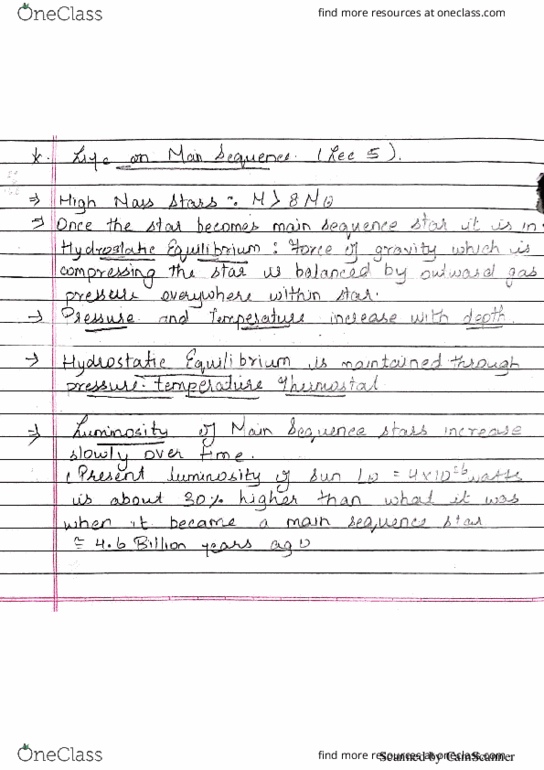 OneClass
find more resources at oneclass.com
* Life on Main Sequence. (Lec 5).
⇒ High Mass Stars : M > 8 M⊙
⇒ Once the star becomes main sequence star it is in
Hydrostatic Equilibrium : Force of gravity which is
compressing the star is balanced by outward gas
pressure everywhere within star.
→ Pressure and Temperature increase with depth.
→ Hydrostatic Equilibrium is maintained through
pressure-temperature thermostat
⇒ Luminosity of Main Sequence stars increase
slowly over time.
(Present luminosity of Sun L⊙ = 4×10²⁶ watts
is about 30% higher than what it was
when it became a main sequence star
≅ 4.6 Billion years ago
OneClass
find more resources at oneclass.com
Scanned by CamScanner